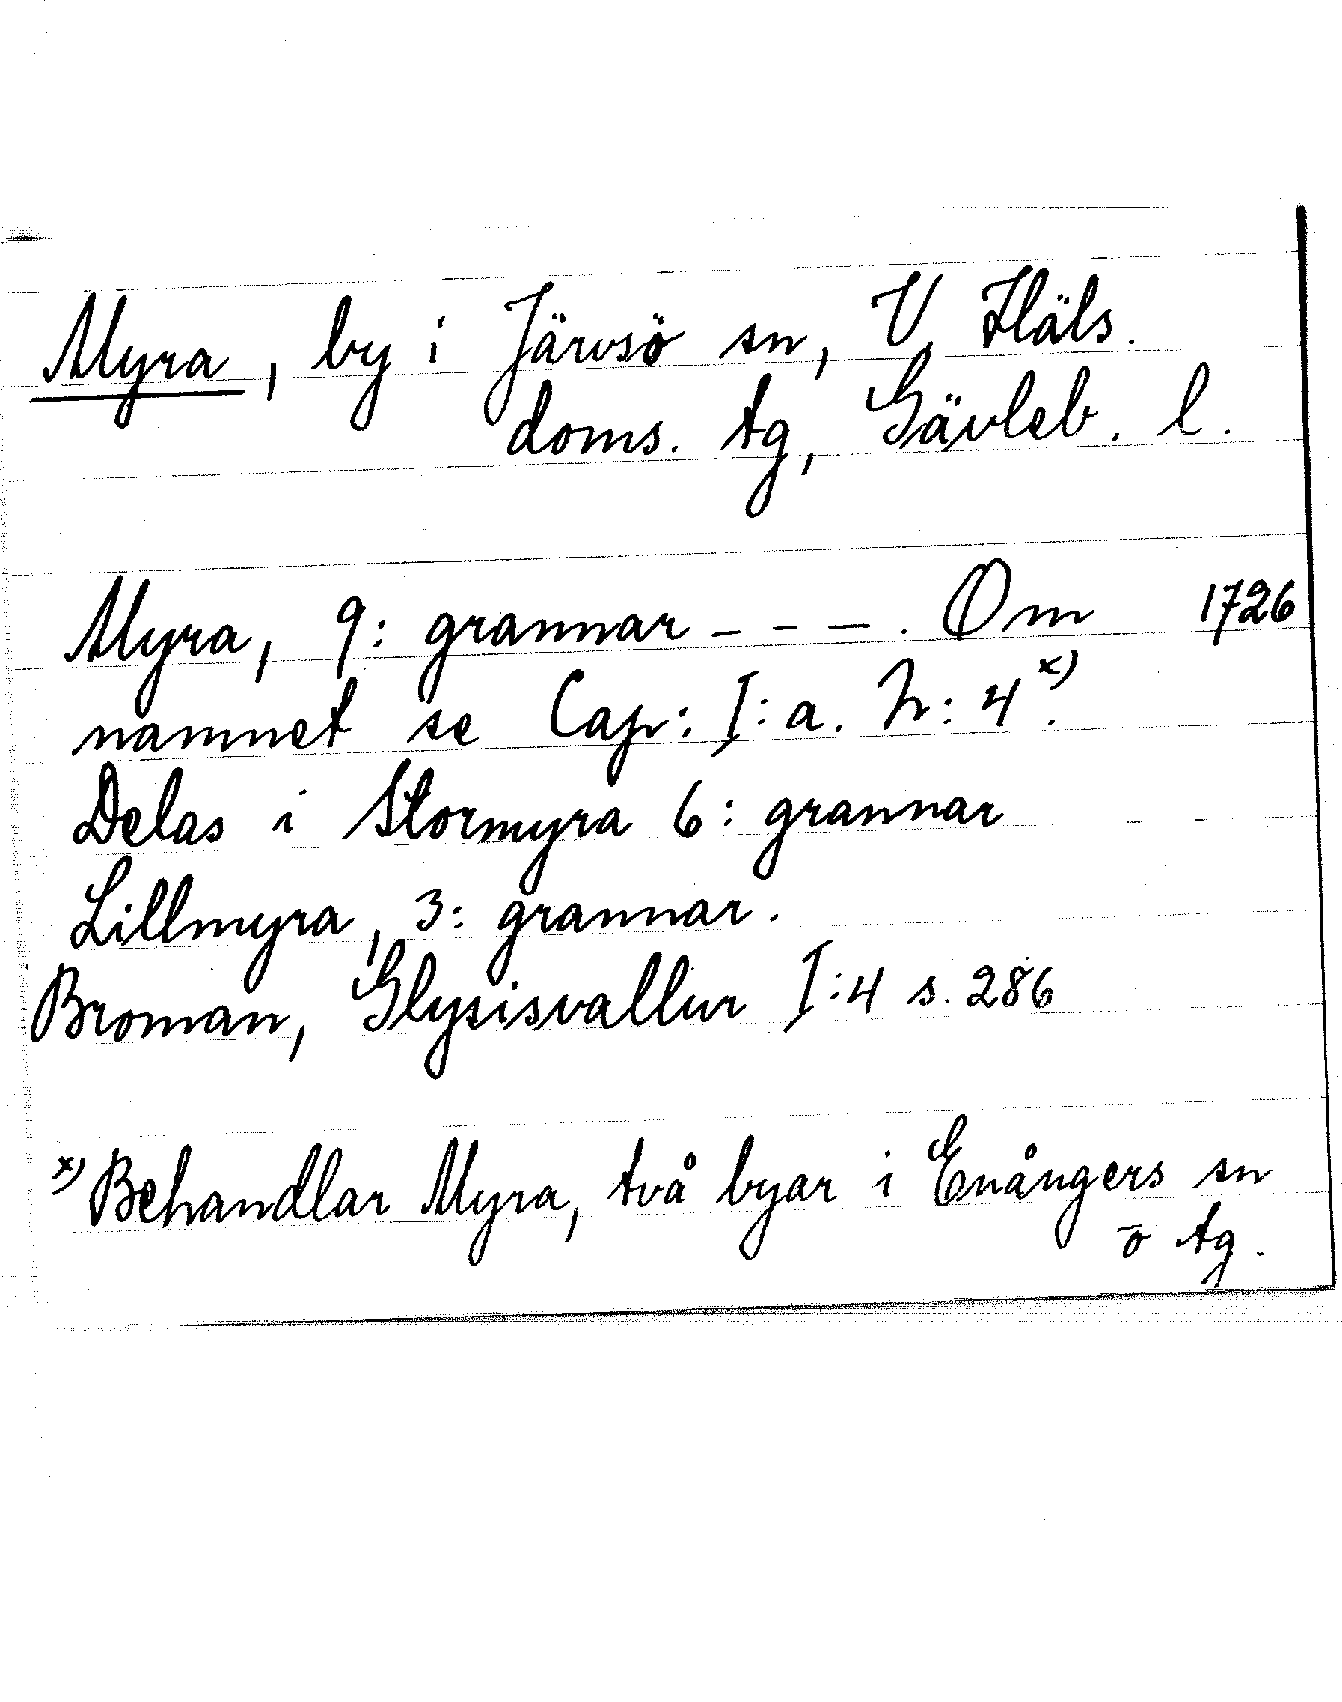 Myra, by i Järvsö sn, V Häls.
doms. tg, Gävleb. l.
Myra, 9: grannar - - -. Om 1726
namnet se Cap: I: a. N: 4 x).
Delas i Stormyra 6: grannar
Lillmyra, 3: grannar.
Broman, Glysisvallur I:4 s. 286
x) Behandlar Myra, två byar i Enångers sn
o tg.